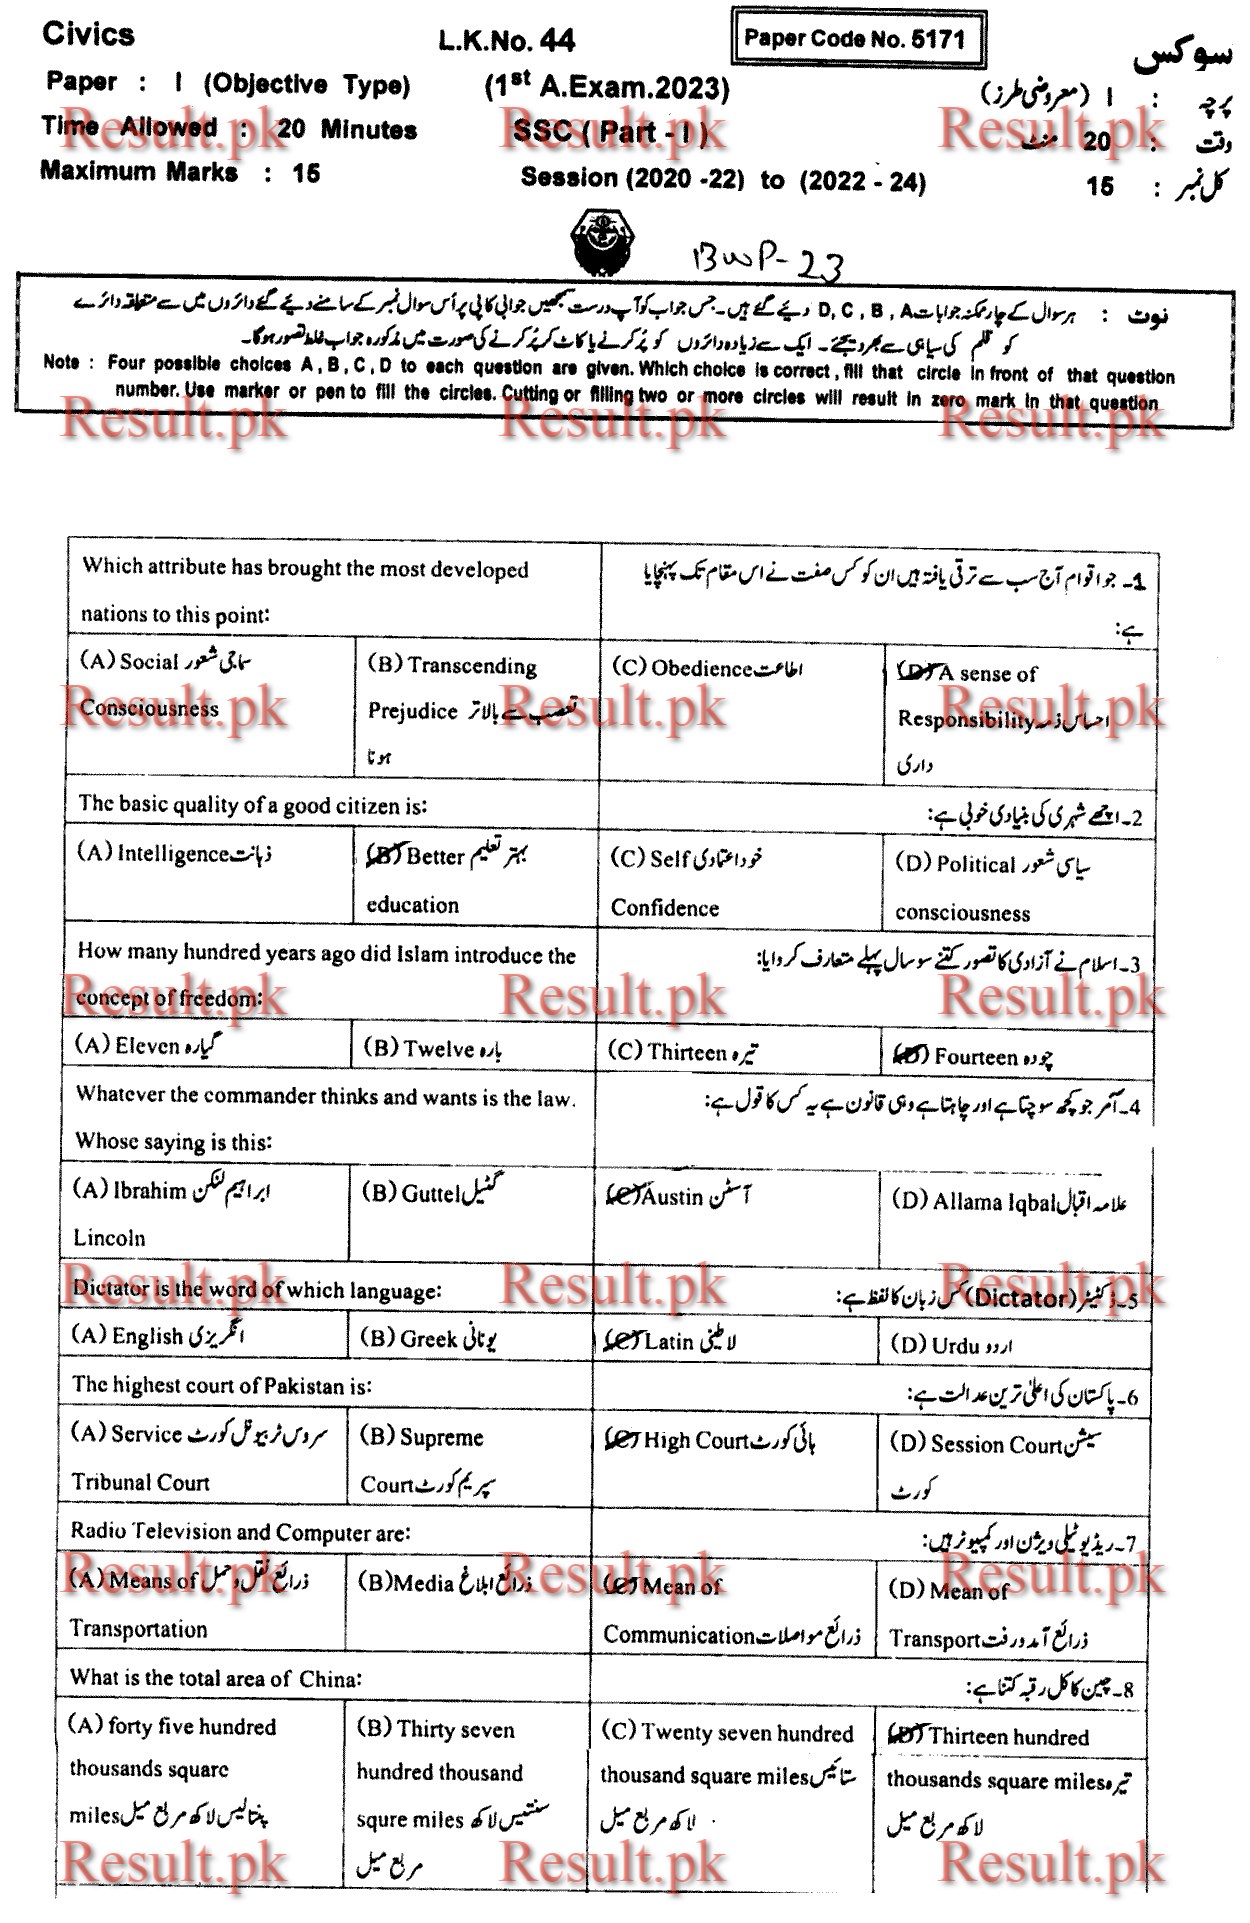 Civics
L.K.No. 44
Paper Code No. 5171
سوکس
Paper : I (Objective Type)
(1st A.Exam.2023)
پرچہ : I (معروضی طرز)
Time Allowed : 20 Minutes
SSC ( Part - I )
وقت : 20 منٹ
Maximum Marks : 15
Session (2020 -22) to (2022 - 24)
کل نمبر : 15
BWP-23
نوٹ : ہر سوال کے چار ممکنہ جوابات D, C, B, A دیئے گئے ہیں۔ جس جواب کو آپ درست سمجھیں جوابی کاپی پر اُس سوال نمبر کے سامنے دیئے گئے دائروں میں سے متعلقہ دائرے
کو قلم کی سیاہی سے بھر دیجئے۔ ایک سے زیادہ دائروں کو پُر کرنے یا کاٹ کر پُر کرنے کی صورت میں مذکورہ جواب غلط تصور ہوگا۔
Note : Four possible choices A , B , C , D to each question are given. Which choice is correct , fill that circle in front of that question
number. Use marker or pen to fill the circles. Cutting or filling two or more circles will result in zero mark in that question
Result.pk Result.pk Result.pk
Which attribute has brought the most developed
nations to this point:
1۔ جو اقوام آج سب سے ترقی یافتہ ہیں ان کو کس صفت نے اس مقام تک پہنچایا
ہے:
(A) Social سماجی شعور
Consciousness
(B) Transcending
Prejudice تعصب سے بالاتر
ہونا
(C) Obedience اطاعت
(D) A sense of
Responsibility احساس ذمہ
داری
The basic quality of a good citizen is:
2۔ اچھے شہری کی بنیادی خوبی ہے:
(A) Intelligence ذہانت
(B) Better بہتر تعلیم
education
(C) Self خود اعتمادی
Confidence
(D) Political سیاسی شعور
consciousness
How many hundred years ago did Islam introduce the
concept of freedom:
3۔ اسلام نے آزادی کا تصور کتنے سو سال پہلے متعارف کروایا:
(A) Eleven گیارہ
(B) Twelve بارہ
(C) Thirteen تیرہ
(D) Fourteen چودہ
Whatever the commander thinks and wants is the law.
Whose saying is this:
4۔ آمر جو کچھ سوچتا ہے اور چاہتا ہے وہی قانون ہے یہ کس کا قول ہے:
(A) Ibrahim ابراہیم لنکن
Lincoln
(B) Guttel گٹیل
(C) Austin آسٹن
(D) Allama Iqbal علامہ اقبال
Dictator is the word of which language:
5۔ ڈکٹیٹر (Dictator) کس زبان کا لفظ ہے:
(A) English انگریزی
(B) Greek یونانی
(C) Latin لاطینی
(D) Urdu اردو
The highest court of Pakistan is:
6۔ پاکستان کی اعلیٰ ترین عدالت ہے:
(A) Service سروس ٹربیونل کورٹ
Tribunal Court
(B) Supreme
Court سپریم کورٹ
(C) High Court ہائی کورٹ
(D) Session Court سیشن
کورٹ
Radio Television and Computer are:
7۔ ریڈیو ٹیلی ویژن اور کمپیوٹر ہیں:
(A) Means of ذرائع نقل و حمل
Transportation
(B) Media ذرائع ابلاغ
(C) Mean of
Communication ذرائع مواصلات
(D) Mean of
Transport ذرائع آمد و رفت
What is the total area of China:
8۔ چین کا کل رقبہ کتنا ہے:
(A) forty five hundred
thousands square
miles پنتالیس لاکھ مربع میل
(B) Thirty seven
hundred thousand
squre miles سنتیس لاکھ
مربع میل
(C) Twenty seven hundred
thousand square miles ستائیس
لاکھ مربع میل
(D) Thirteen hundred
thousands square miles تیرہ
لاکھ مربع میل